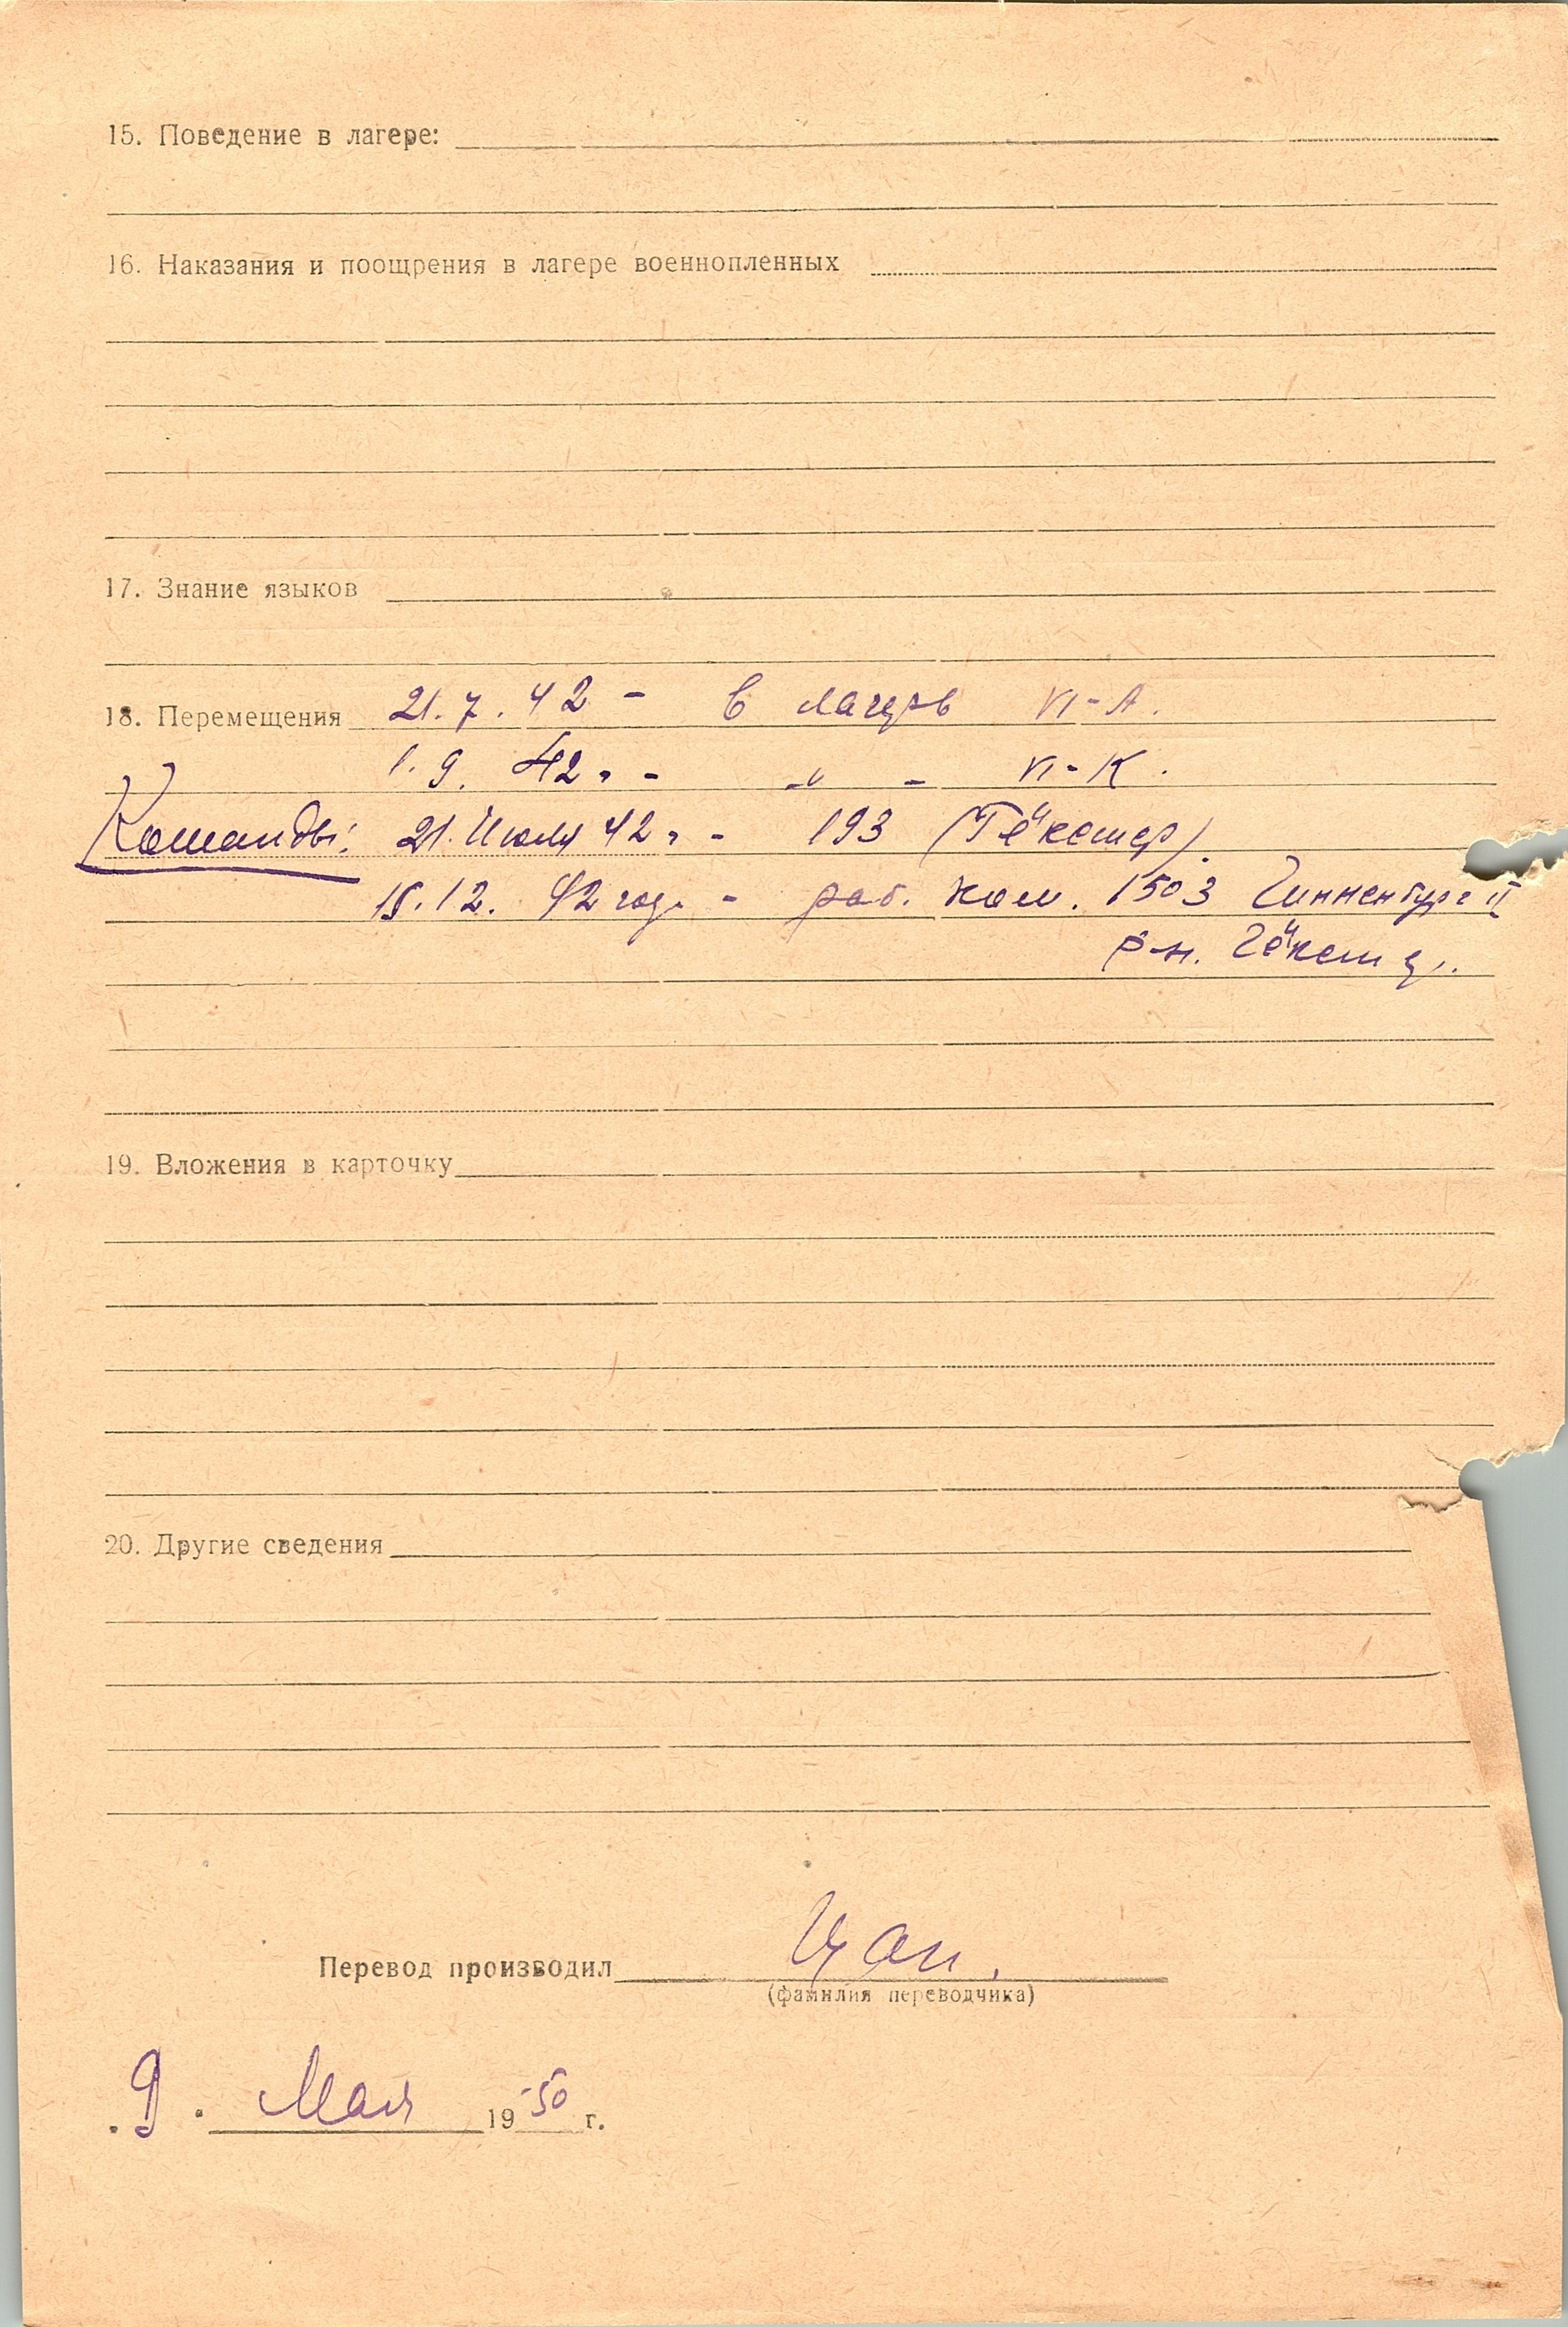 15. Поведение в лагере:
16. Наказания и поощрения в лагере военнопленных
17. Знание языков
18. Перемещения 21.7.42 - в лагерь VI-A.
1.9.42 г. - " - VI-K.
Команды: 21. Июля 42 г. - 193 (Гёкстер).
15.12.42 год. - раб. ком. 1503 II
р-н. Гёкст
19. Вложения в карточку
20. Другие сведения
Перевод производил
(фамилия переводчика)
9. Мая 1950 г.